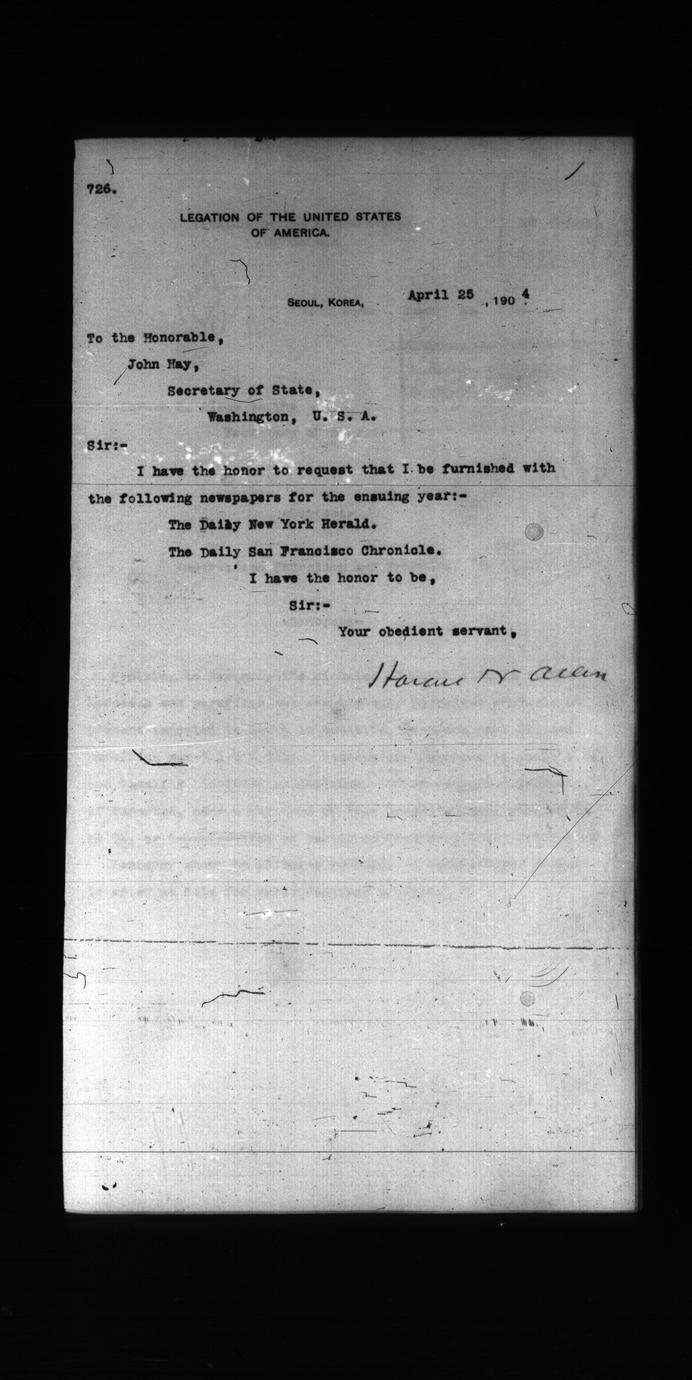 726.
LEGATION OF THE UNITED STATES
OF AMERICA.
SEOUL, KOREA, April 25, 1904.
To the Honorable,
John Hay,
Secretary of State,
Washington, U. S. A.
Sir:-
I have the honor to request that I be furnished with
the following newspapers for the ensuing year:-
The Daily New York Herald.
The Daily San Francisco Chronicle.
I have the honor to be,
Sir:-
Your obedient servant,
Horace N Allen